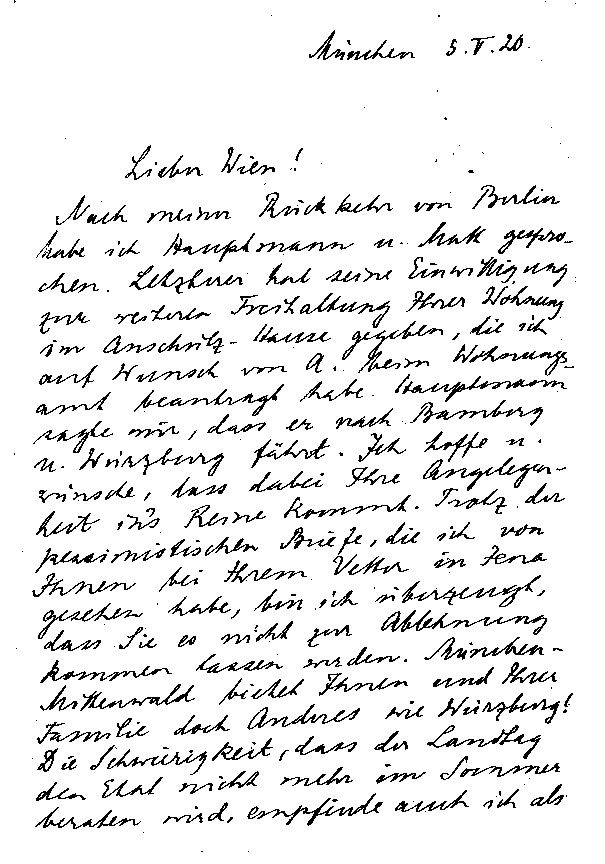 München 5.V.20.
Lieber Wien!
Nach meiner Rückkehr von Berlin
habe ich Hauptmann u. Matt gespro-
chen. Letzterer hat seine Einwilligung
zur weiteren Freihaltung Ihrer Wohnung
im Anschütz-Hause gegeben, die ich
auf Wunsch von A. beim Wohnungs-
amt beantragt habe. Hauptmann
sagte mir, dass er nach Bamberg
u. Würzburg fährt. Ich hoffe u.
wünsche, dass dabei Ihre Angelegen-
heit in's Reine kommt. Trotz der
pessimistischen Briefe, die ich von
Ihnen bei Ihrem Vetter in Jena
gesehen habe, bin ich überzeugt,
dass Sie es nicht zur Ablehnung
kommen lassen werden. München-
Mittenwald bietet Ihnen und Ihrer
Familie doch Anderes wie Würzburg!
Die Schwierigkeit, dass der Landtag
den Etat nicht mehr im Sommer
beraten wird, empfinde auch ich als